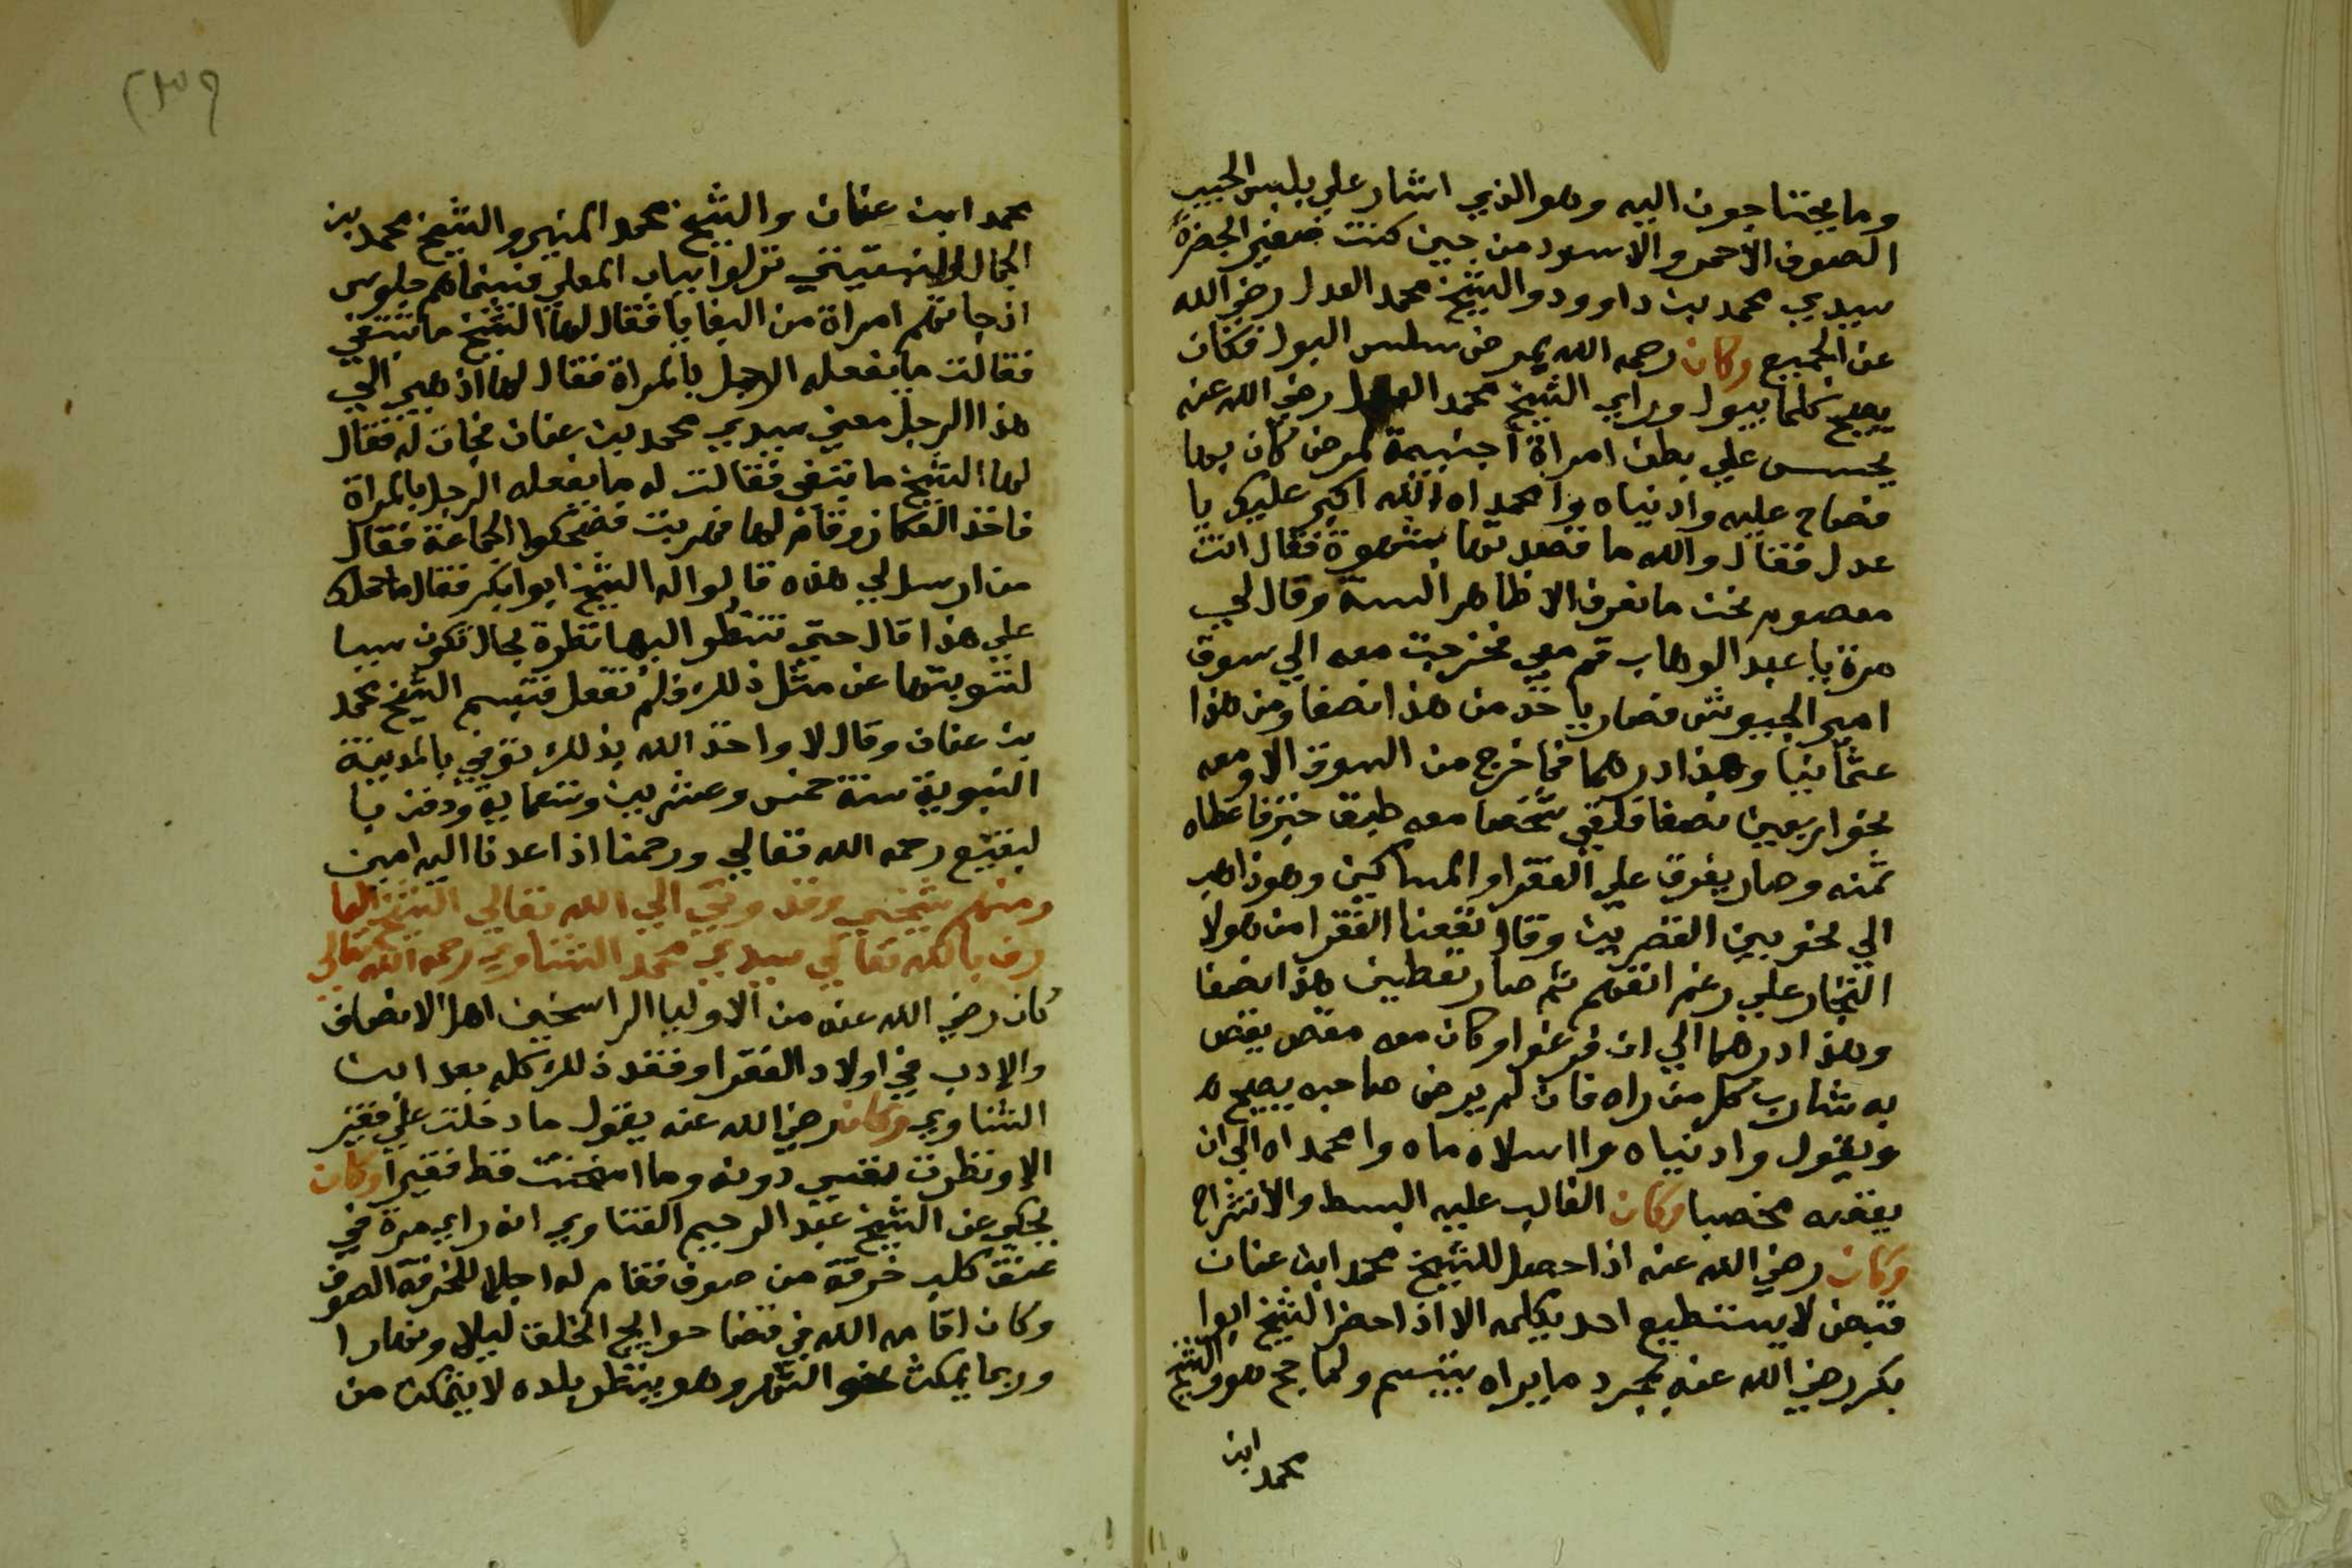 وما يحتاجون اليه وهو الذي اشار علي بلبس الجبب
الصوف الاحمر والاسود من حين كنت صغير الحضرة
سيدي محمد بن داوود والشيخ محمد العدل رضي الله
عن الجميع وكان رحمه الله يمرض سلس البول فكان
يصيح كلما يبول وراي الشيخ محمد العدل رضي الله عنه
يحسس علي بطن امراة اجنبية لمرض كان بها
فصاح عليه وادنياه وامحمداه الله اكبر عليك يا
عدل فقال والله ما قصدتها بشهوة فقال انت
معصوم نحن ما نعرف الا ظاهر السنة وقال لي
مرة يا عبد الوهاب قم معي فخرجت معه الي سوق
امير الجيوش فصار ياخذ من هذا نصفا ومن هذا
عثمانيا وهذا درهما فما خرج من السوق الا ومعه
نحو اربعين نصفا فلقي شخصا معه طبق خبز فاعطاه
ثمنه وصار يفرق علي الفقرا والمساكين وهو ذاهب
الي نحو بين القصرين وقال نفعنا الفقرا من هولا
التجار علي رغم انفهم ثم صار يعطي هذا نصفا
وهذا درهما الي ان فرغوا وكان معه مقص يقص
به شارب كل من راه فان لم يرض صاحبه يصيح
ويقول وادنياه وااسلاماه وامحمداه الي ان
يقصه غصبا وكان الغالب عليه البسط والانشراح
وكان رضي الله عنه اذا حصل للشيخ محمد ابن عنان
قبض لا يستطيع احد يكلمه الا اذا حضر الشيخ ابوا
بكر رضي الله عنه بمجرد ما يراه يتبسم ولما حج هو والشيخ
محمد ابن
محمد ابن عنان والشيخ محمد المنير والشيخ محمد بن
الجمال نزلوا بباب المعلي فبينما هم جلوس
اذ جاتهم امراة من البغايا فقال لها الشيخ ما تبتغي
فقالت ما يفعله الرجل بالمراة فقال لها اذهبي الي
هذا الرجل معني سيدي محمد بن عنان فجات له فقال
لها الشيخ ما تبتغي فقالت له ما يفعله الرجل بالمراة
فاخذ العكاز وقام لها فهربت فضحكوا الجماعة فقال
من ارسل لي هذه قالوا له الشيخ ابوا بكر فقال ما حملك
علي هذا قال حتي تنظر اليها نظرة بحال تكون سببا
لتوبتها عن مثل ذلك فلم تفعل فتبسم الشيخ محمد
بن عنان وقال لا واخذ الله بذلك توفي بالمدينة
النبوية سنة خمس وعشرين وتسعماية ودفن با
لبقيع رحمه الله تعالي ورحمنا اذا عدنا اليه امين
ومنهم شيخي وقدوتي الي الله تعالي الشيخ العا
رف بالله تعالي سيدي محمد الشناوي رحمه الله تعالي
كان رضي الله عنه من الاوليا الراسخين اهل الانصاف
والادب في اولاد الفقرا وفقد ذلك كله بعد ابن
الشناوي وكان رضي الله عنه يقول ما دخلت علي فقير
الا ونظرت نفسي دونه وما امتحنت قط فقيرا وكان
يحكي عن الشيخ عبد الرحيم القناوي انه راي مرة في
عنق كلب خرقة من صوف فقام له اجلالا للخرقة الصوف
وكان اقامه الله في قضا حوايج الخلق ليلا ونهارا
وربما يمكث نحو الشهر وهو ينظر بلده لا يتمكن من